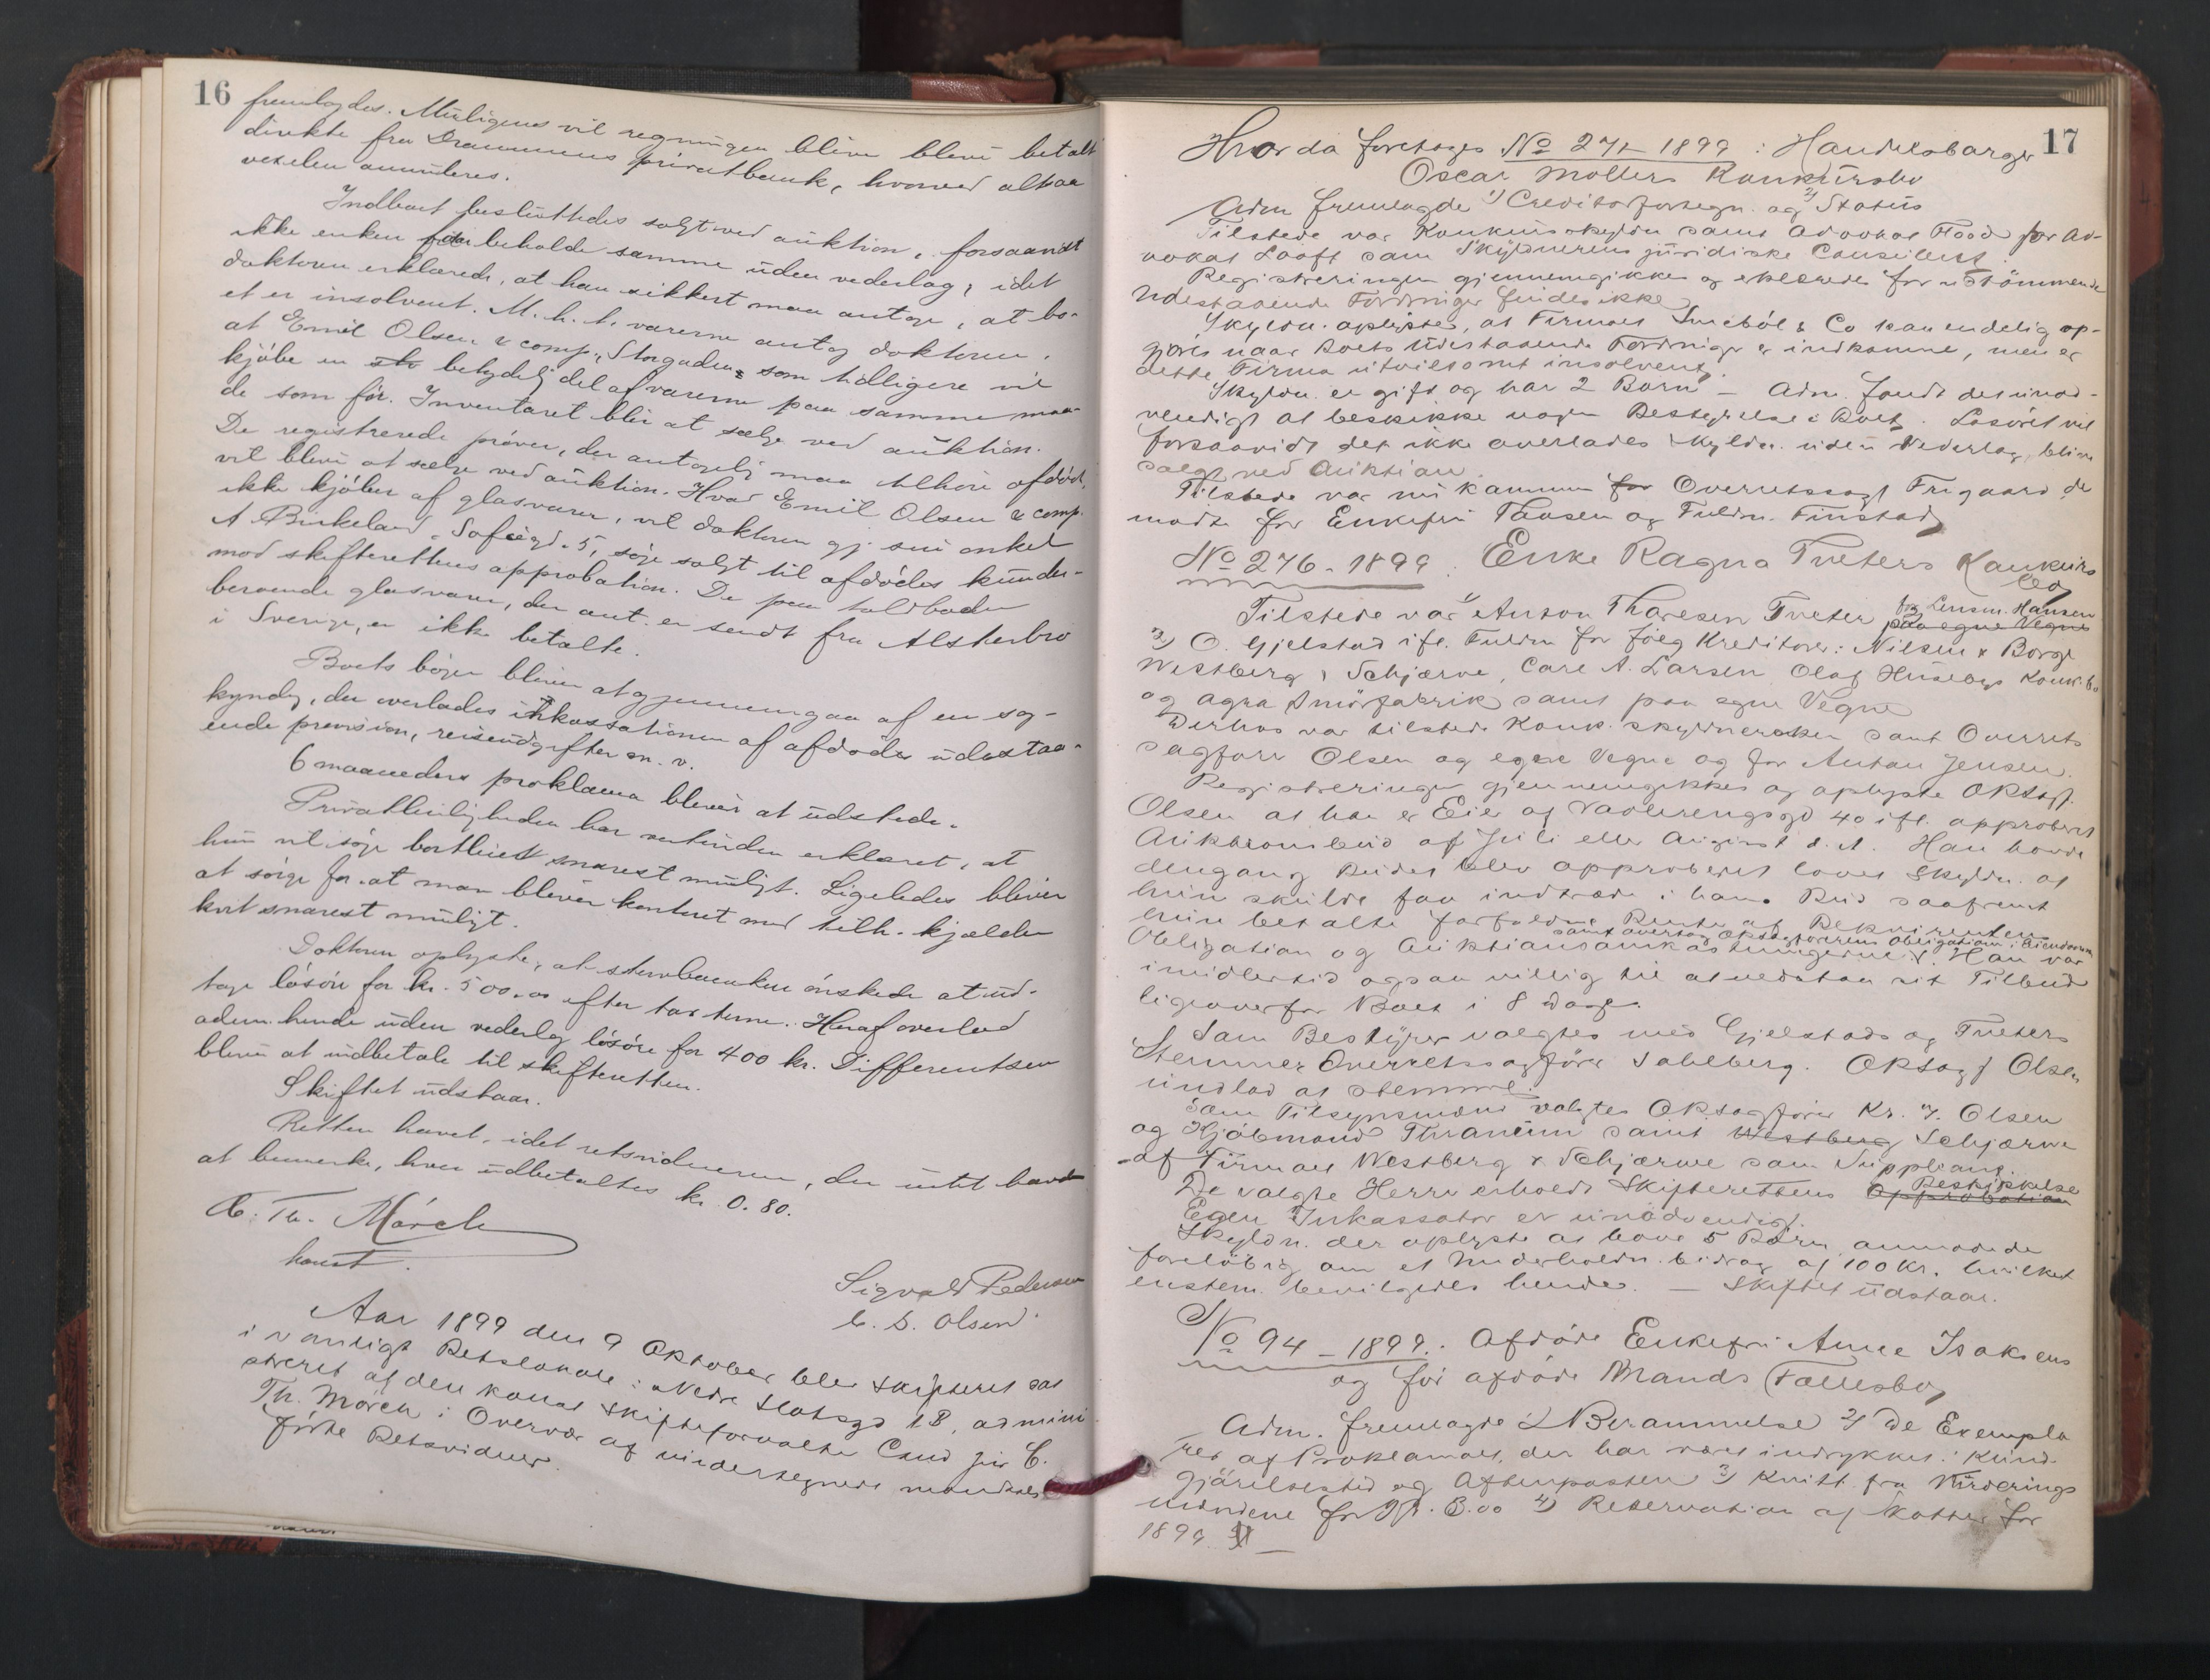 16
fremlagdes. Muligens vil regningen blive bleve betalt
direkte fra Drammens privatbank, hvorved altsaa
vexelen annuleres.
Indboet besluttedes solgt ved auktion, forsaavidt
ikke enken faar beholde samme uden vederlag, idet
doktoren erklærede, at han sikkert maa antage, at bo-
et er insolvent. M. h. t. varerne antog doktoren,
at Emil Olsen & comp., Storgaden, som tidligere vil
kjøbe en betydelig del af varerne paa samme maa-
de som før. Inventaret blir at sælge ved auktion.
De registrerede prøver, der antagelig maa tilhøre afdøde,
vil blive at sælge ved auktion. Hvad Emil Olsen & comp.
ikke kjøber af glasvarer, vil doktoren gj. sin onkel
A Birkeland, Sofiegd. 5, søge solgt til afdødes kunder
mod skifterettens approbation. De paa toldboden
beroende glasvarer, der ant. er sendt fra Alsterbro
i Sverige, er ikke betalte.
Boets bøger bliver at gjennemgaa af en sag-
kyndig, der overlades inkassationen af afdødes udestaa-
ende provision, reiseudgifter m. v.
6 maaneders proklama bliver at udstede.
Privatleiligheden har enkefruen erklæret, at
hun vil søge bortleiet snarest muligt. Ligeledes bliver
at sørge for at man bliver kontoret med tilh. kjælder
kvit snarest muligt.
Doktoren oplyste, at stervboenken ønskede at ud-
tage løsøre for kr. 500.00 efter taxterne. Heraf overlod
adm. hende uden vederlag løsøre for 400 kr. Differentsen
bliver at indbetale til skifteretten.
Skiftet udstaar.
Retten hævet, idet retsvidnerne, der intet havde
at bemerke, hver udbetaltes kr. 0.80.
C. Th. Mørch
konst.
Sigvald Pedersen
C. S. Olsen
Aar 1899 den 9 Oktober blev Skifteret sat
i vanligt Retslokale i Nedre Slotsgd 1B, admini-
streret af den konst Skifteforvalter Cand jur C.
Th. Mørch i Overvær af undertegnede mandtals-
førte Retsvidner.
17
Hvorda foretoges No 271-1899: Handelsborger
Oscar Møllers Konkursbo
Adm fremlagde 1) Creditorfortegn. og 2) Status
Tilstede var Konkursskyldn samt Advokat Flood for Ad-
vokat Looft som Skyldnerens juridiske Conseilent.
Registreringen gjennemgikkes og erklæredes for udtømmende
Udestaaende Fordringer findes ikke
Skyldn. oplyste, at Firmaet & Co kan endelig op-
gjøres naar Boets Udestaaende Fordringer er indkomne, men er
dette Firma utvilsomt insolvent.
Skyldn. er gift og har 2 Børn — Adm. fandt det unød-
vendigt at beskikke nogen Bestyrelse i Boet. Løsøret vil
forsaavidt det ikke overlades Skyldn. uden Vederlag, blive
solgt ved Auktion.
Tilstede var nu kommen for Overretssagf Frigaard der
mødte for Enkefru Pausen og Fuldm. Finstad
No 276-1899. Enke Ragna Tveters Konkurs
bo
Tilstede var 1) Anton Thoresen Tveter for Lensm. Hansen
paa egne Vegne
2) O. Gjelstad ifl. Fuldm for følg Kreditorer: Nilsen & Borge
Westberg & Schjærve, Carl A. Larsen Olaf Husebys Konk.bo
og Agra Smørfabrik samt paa egne Vegne
Derhos var tilstede Konk. skyldnersken samt Overrets
sagfører Olsen og egne Vegne og for Anton Jensen.
Registreringen gjennemgikkes og oplyste ORsagf.
Olsen at han er Eier af Vaalerenggd 40 ifl. approberet
Auktionsbud af Juli eller August d. A. Han havde
dengang Budet blev approberet lovet Skyldn. at
hun skulde faa indtræde i hans Bud saafremt
hun betalte forfaldne Renter af Rekvirentens
samt overtog ORsagførerens Obligation i Eiendommen
Obligation og Auktionsomkostningerne. Han var
imidlertid ogsaa villig til at vedstaa sit Tilbud
ligeoverfor Boet i 8 Dage.
Som Bestyrer valgtes med Gjelstads og Tveters
Stemmer Overretssagfører Sahlberg. ORsagf Olsen
undlod at stemme.
Som Tilsynsmænd valgtes ORsagfører Kr. F. Olsen
og Kjøbmand Thraneim samt Westberg Schjærve
af Firmaet Westberg & Schjærve som Suppleant.
De valgte Herrer erholdt Skifterettens Approbation Beskikkelse
Egen Inkassator er unødvendigt.
Skyldn. der oplyste at have 5 Børn, anmodede
foreløbig om et Underholdn. bidrag af 100 Kr. hvilket
enstem. bevilgedes hende. — Skiftet udstaar.
No 94-1899. Afdøde Enkefru Anne Isaksens
og før afdøde Mands Fællesbo
Adm. fremlagde 1) Berammelse 2) De Exempla
rer af Proklamaet, der har været indrykket i Kund-
gjørelsestid og Aftenposten 3) Kvitt. fra Vurderings
mændene for Kr. 8.00 4) Reservation af Skatter for
1899